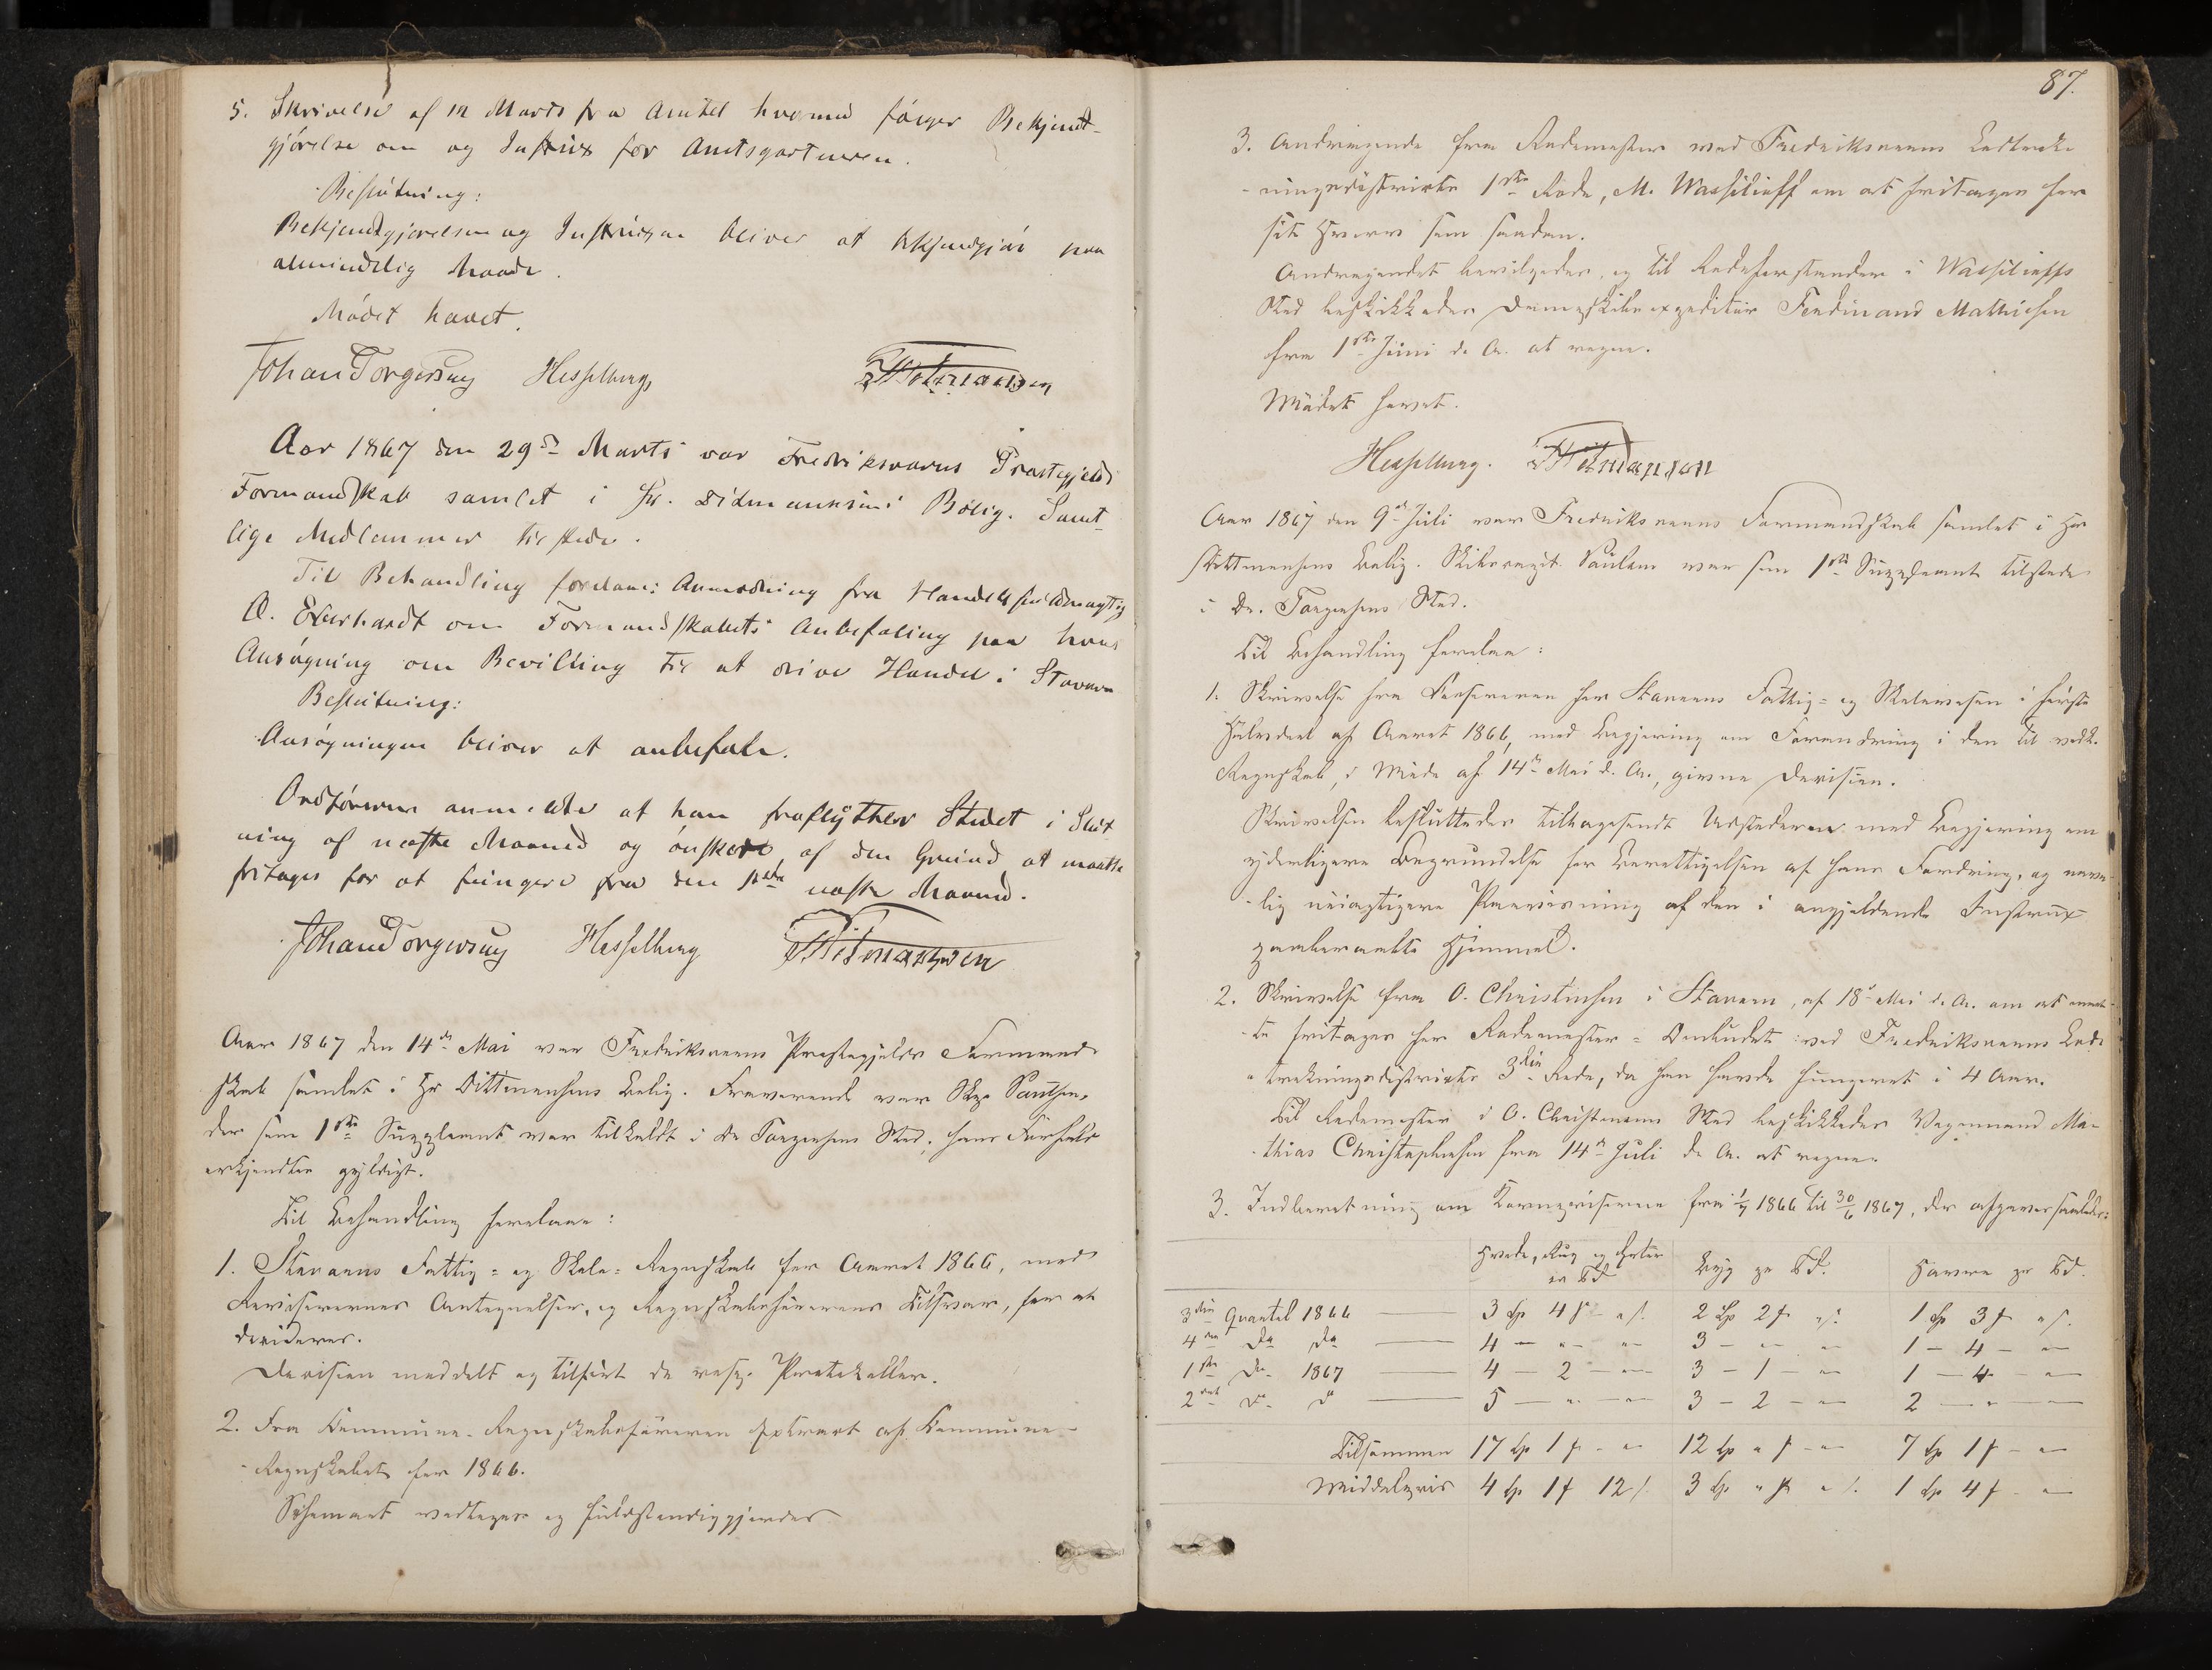 5. Skrivelse af 12 Marts fra Amtet hvormed følger Bekjendt-
gjørelse om og Instrux for Amtsgartneren.
Beslutning:
Bekjendtgjørelsen og Instruxen bliver at bekjendtgjøre paa
almindelig Maade.
Mødet hævet.
Johan Torgersen Hesselberg
Aar 1867 den 29de Marts var Fredriksværns Præstegjelds
Formandskab samlet i Hr. Ditmansens Bolig. Samt-
lige Medlemmer tilstede.
Til Behandling forelaae: Anmodning fra Handelsfuldmægtig
O. Eberhardt om Formandskabets Anbefaling paa hans
Ansøgning om Bevilling til at drive Handel i Stavern
Beslutning:
Ansøgningen bliver at anbefale.
Ordføreren anmeldte at han fraflytter Stedet i Slut-
ning af næste Maaned og ønskede af den Grund at maatte
fritages for at fungere fra den næste Maaned.
Johan Torgersen Hesselberg
Aar 1867 den 14de Mai var Fredriksværns Præstegjelds Formand-
skab samlet i Hr Dittmansens Bolig. Fraværende var Paulsen,
der som 1ste Suppleant var tilkaldt i Dr Torgersens Sted; hans Forfald
erkjendtes gyldigt.
Til Behandling forelaae:
1. Staværns Fattig- og Skole-Regnskab for Aaret 1866, med
Revisorernes Antegnelser, og Regnskabsførerens Tilsvar, for at
decideres.
Decision meddelt og tilført de resp. Protokoller.
2. Fra Kommune-Regnskabsføreren Extract af Kommune-
-Regnskabet for 1866.
Schemaet vedtoges og fuldstændiggjordes
87.
3. Andragende fra Rodemester ved Fredriksværns Lodtræk-
-ningsdistrikts 1ste Rode, M. Wassilieff om at fritages for
sit Hverv som saadan.
Andragendet bevilgedes, og til Rodeforstander i Wassilieffs
Sted beskikkedes Dampskibsexpeditør Ferdinand Mathiesen
fra 1ste Juni d. A. at regne.
Mødet hævet.
Hesselberg.
Aar 1867 den 9de Juli var Fredriksværns Formandskab samlet i Hr
Dittmansens Bolig. Paulsen var som 1ste Suppleant tilstede
i Dr. Torgersens Sted.
Til Behandling forelaa:
1. Skrivelse fra Kassereren for Staværns Fattig- og Skolevæsen i første
Halvdeel af Aaret 1866, med Begjæring om Forandring i den til vedk.
Regnskab, i Møde af 14de Mai d. A., givne Decision.
Skrivelsen besluttedes tilbagesendt Udstederen med Begjæring om
yderligere Begrundelse for Berettigelsen af hans Fordring, og navn-
-lig nøiagtigere Paavisning af den i angjældende Instrux
paaberaabte Hjemmel.
2. Skrivelse fra O. Christensen i Stavern, af 18de Mai d. A. om at maat-
-te fritages for Rodemester-Ombudet ved Fredriksværns Lod-
-trækningsdistrikts 3die Rode, da han havde fungeret i 4 Aar.
Til Rodemester i O. Christensens Sted beskikkedes Vognmand Ma-
-thias Christophersen fra 14de Juli d. A. at regne.
3. Indberetning om Kornpriserne fra 1/7 1866 til 30/6 1867, der afgaves saaledes:
Hvede, Rug og Erter pr Td Byg pr Td. Havre pr Td.
3die Quartal 1866 — 3 Sp 4 ₰ - " ß. 2 Sp 2 ₰ " ß. 1 Sp 3 ₰ " ß.
4de Do Do — 4 — " — " 3 — " — " 1 — 4 — "
1ste Do. 1867 — 4 — 2 — " 3 — 1 — " 1 — 4 — "
2det Do Do — 5 — " — " 3 — 2 — " 2 — " — "
Tilsammen 17 Sp 1 ₰ - " 12 Sp " ₰ - " 7 Sp 1 ₰ - "
Middelpris 4 Sp 1 ₰ 12 ß 3 Sp " ₰ " ß. 1 Sp 4 ₰ - "